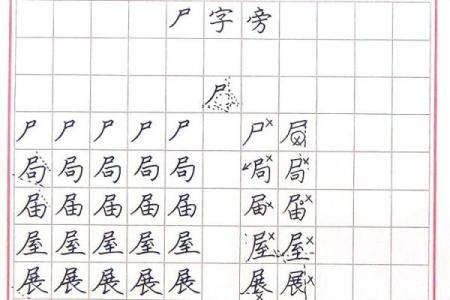 尸字旁
尸
尸尸尸尸尸 尸局
局局局局局 局局
届届届届届 届届
屋屋屋屋屋 屋屋
展展展展展 展展